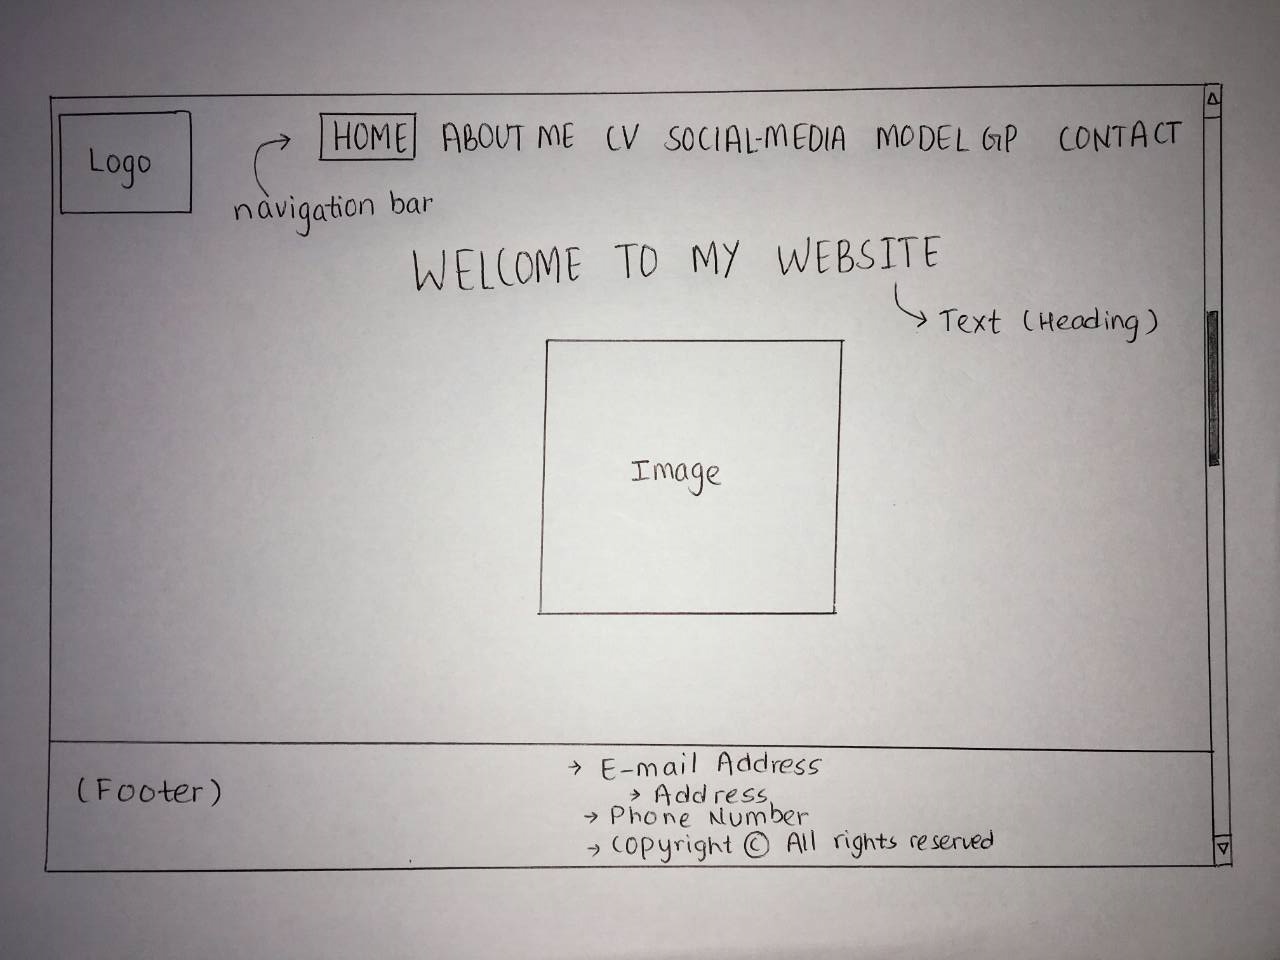 Logo
HOME ABOUT ME CV SOCIAL-MEDIA MODEL GP CONTACT
navigation bar
WELCOME TO MY WEBSITE
Text (Heading)
Image
(Footer)
E-mail Address
Address
Phone Number
Copyright © All rights reserved